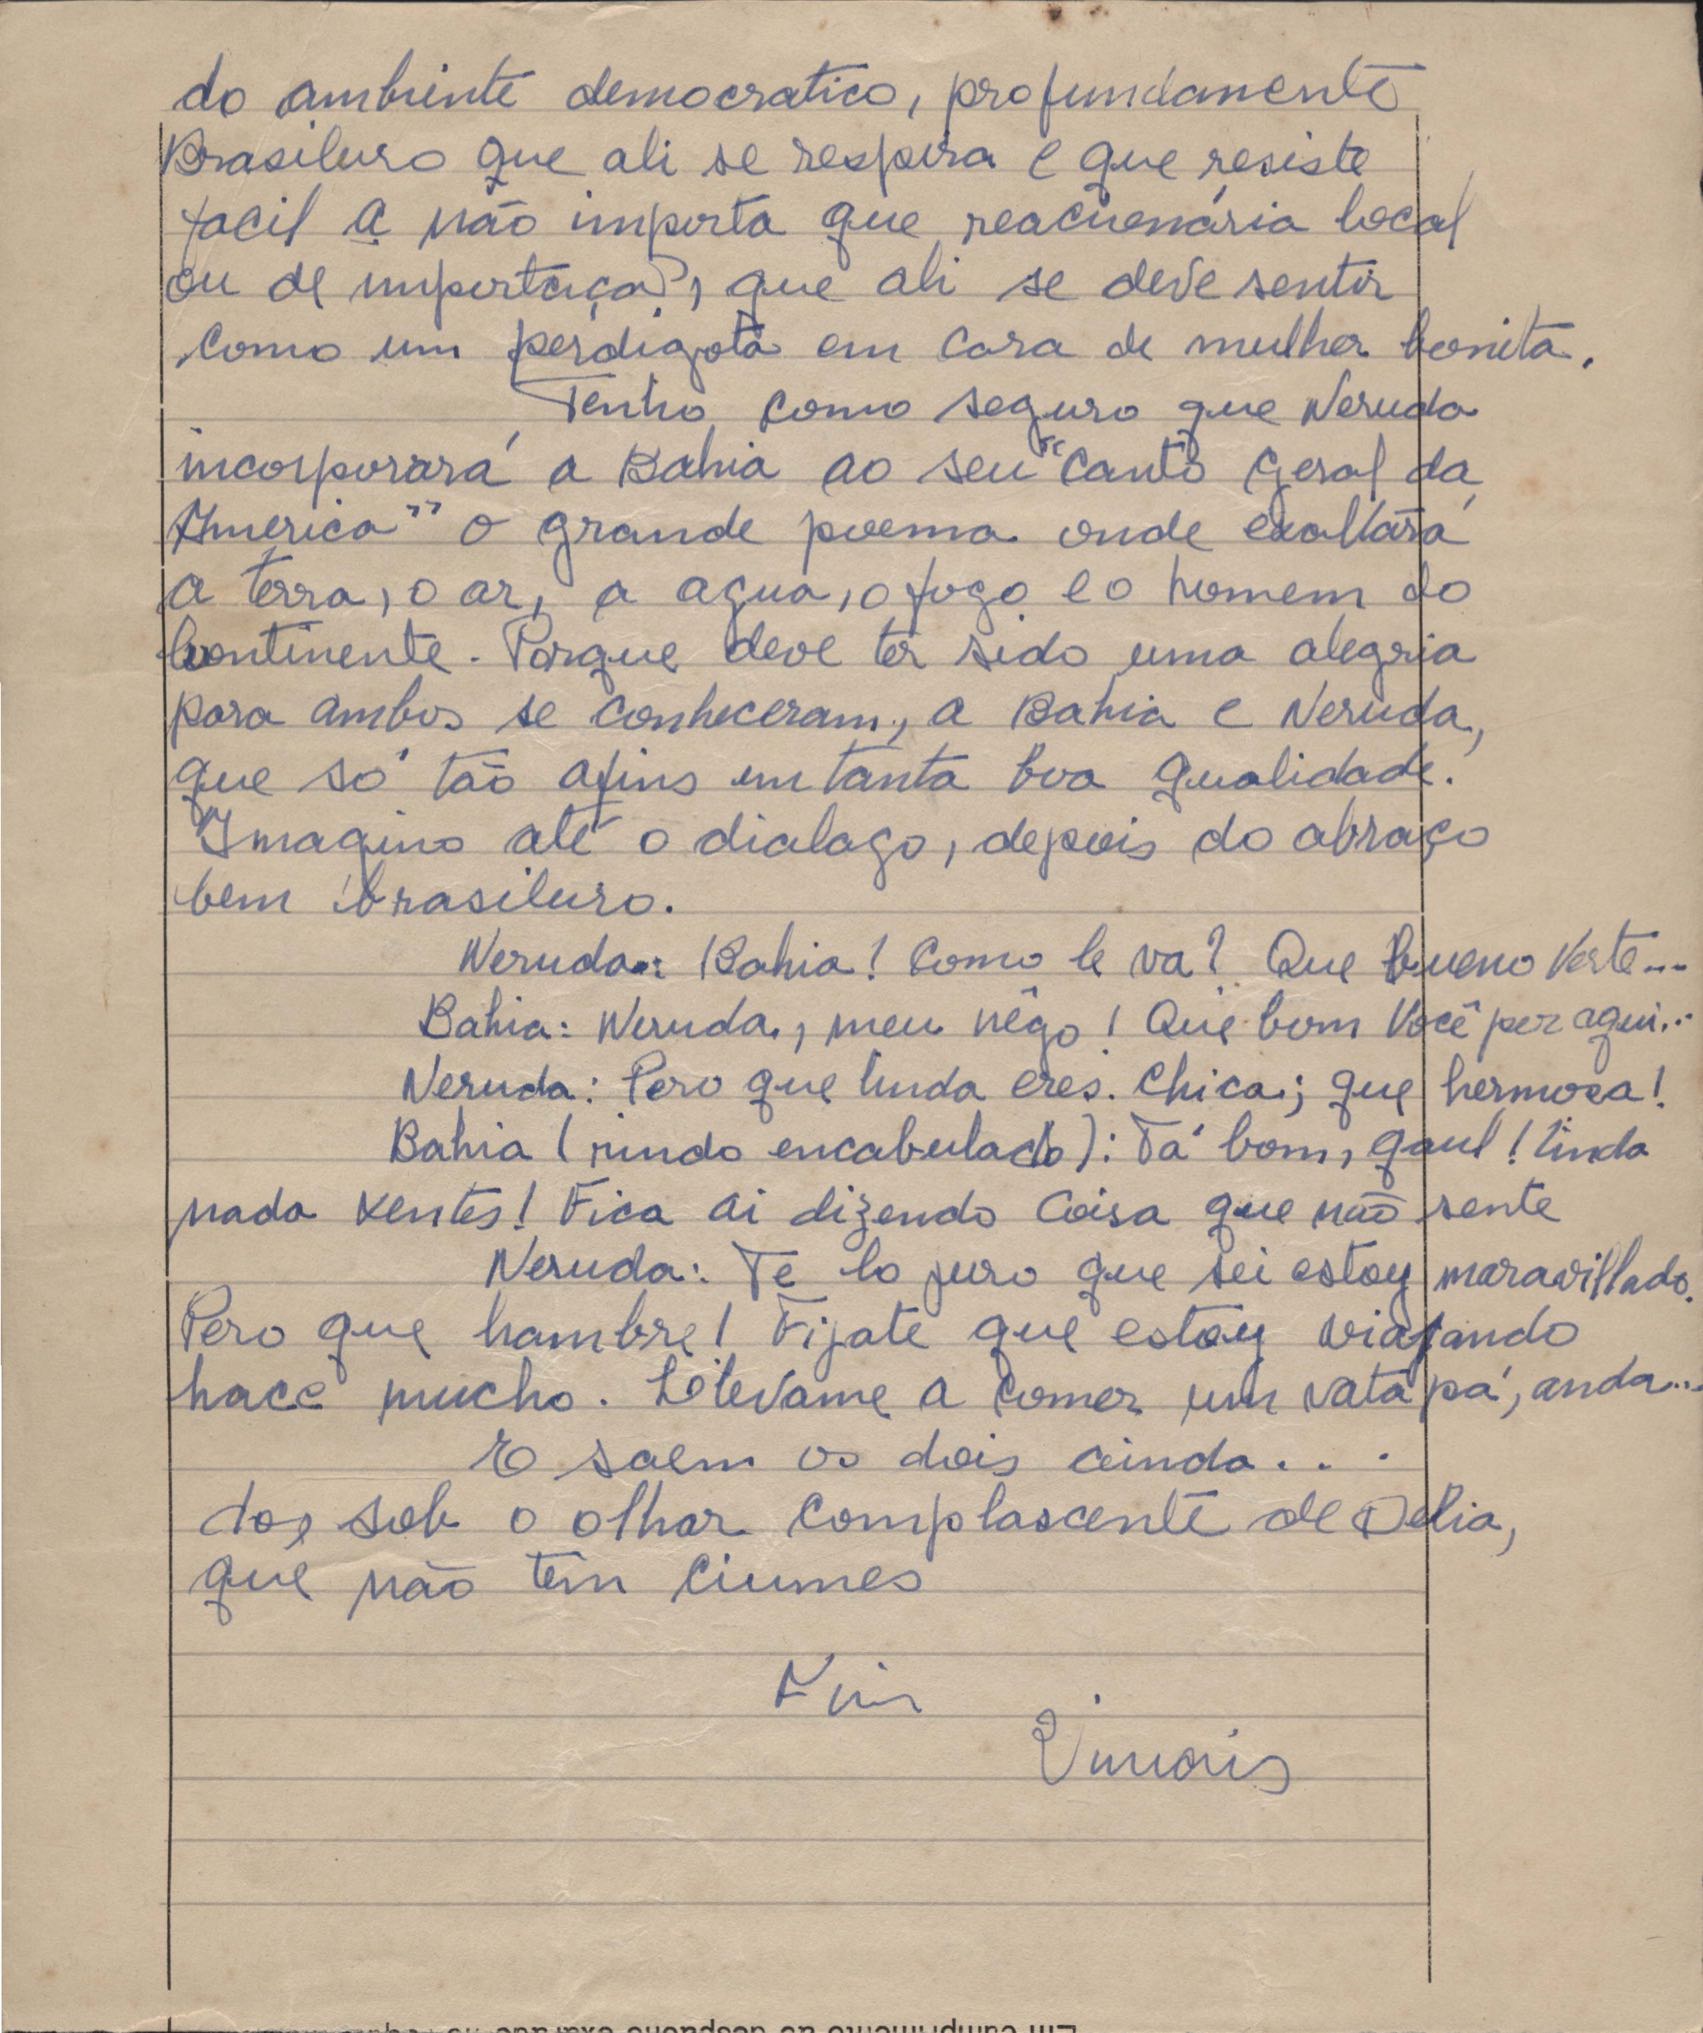 do ambiente democratico, profundamente
Brasileiro que ali se respira e que resiste
facil a não importa que reacionária local
ou de importação, que ali se deve sentir
como um perdigoto em cara de mulher bonita.
Tenho como seguro que Neruda
incorporará a Bahia ao seu "Canto Geral da
America" o grande poema onde exaltará
a terra, o ar, a agua, o fogo e o homem do
Continente. Porque deve ter sido uma alegria
para ambos se conheceram, a Bahia e Neruda,
que só tão afins em tanta boa qualidade.
Imagino até o dialago, depois do abraço
bem brasileiro.
Neruda: Bahia! Como le va? Que bueno verte...
Bahia: Neruda, meu nêgo! Que bom Você por aqui...
Neruda: Pero que linda eres. Chica; que hermosa!
Bahia (rindo encabulado): Tá bom, qaul! linda
nada xentes! Fica ai dizendo Coisa que não sente
Neruda: Te lo juro que sei estoy maravillado.
Pero que hambre! Fijate que estoy viajando
hace mucho. Llevame a comer um vatapá, anda...
E saem os dois ainda...
do, sob o olhar complascente de Delia,
que não tem ciumes
Fim
Vinicius